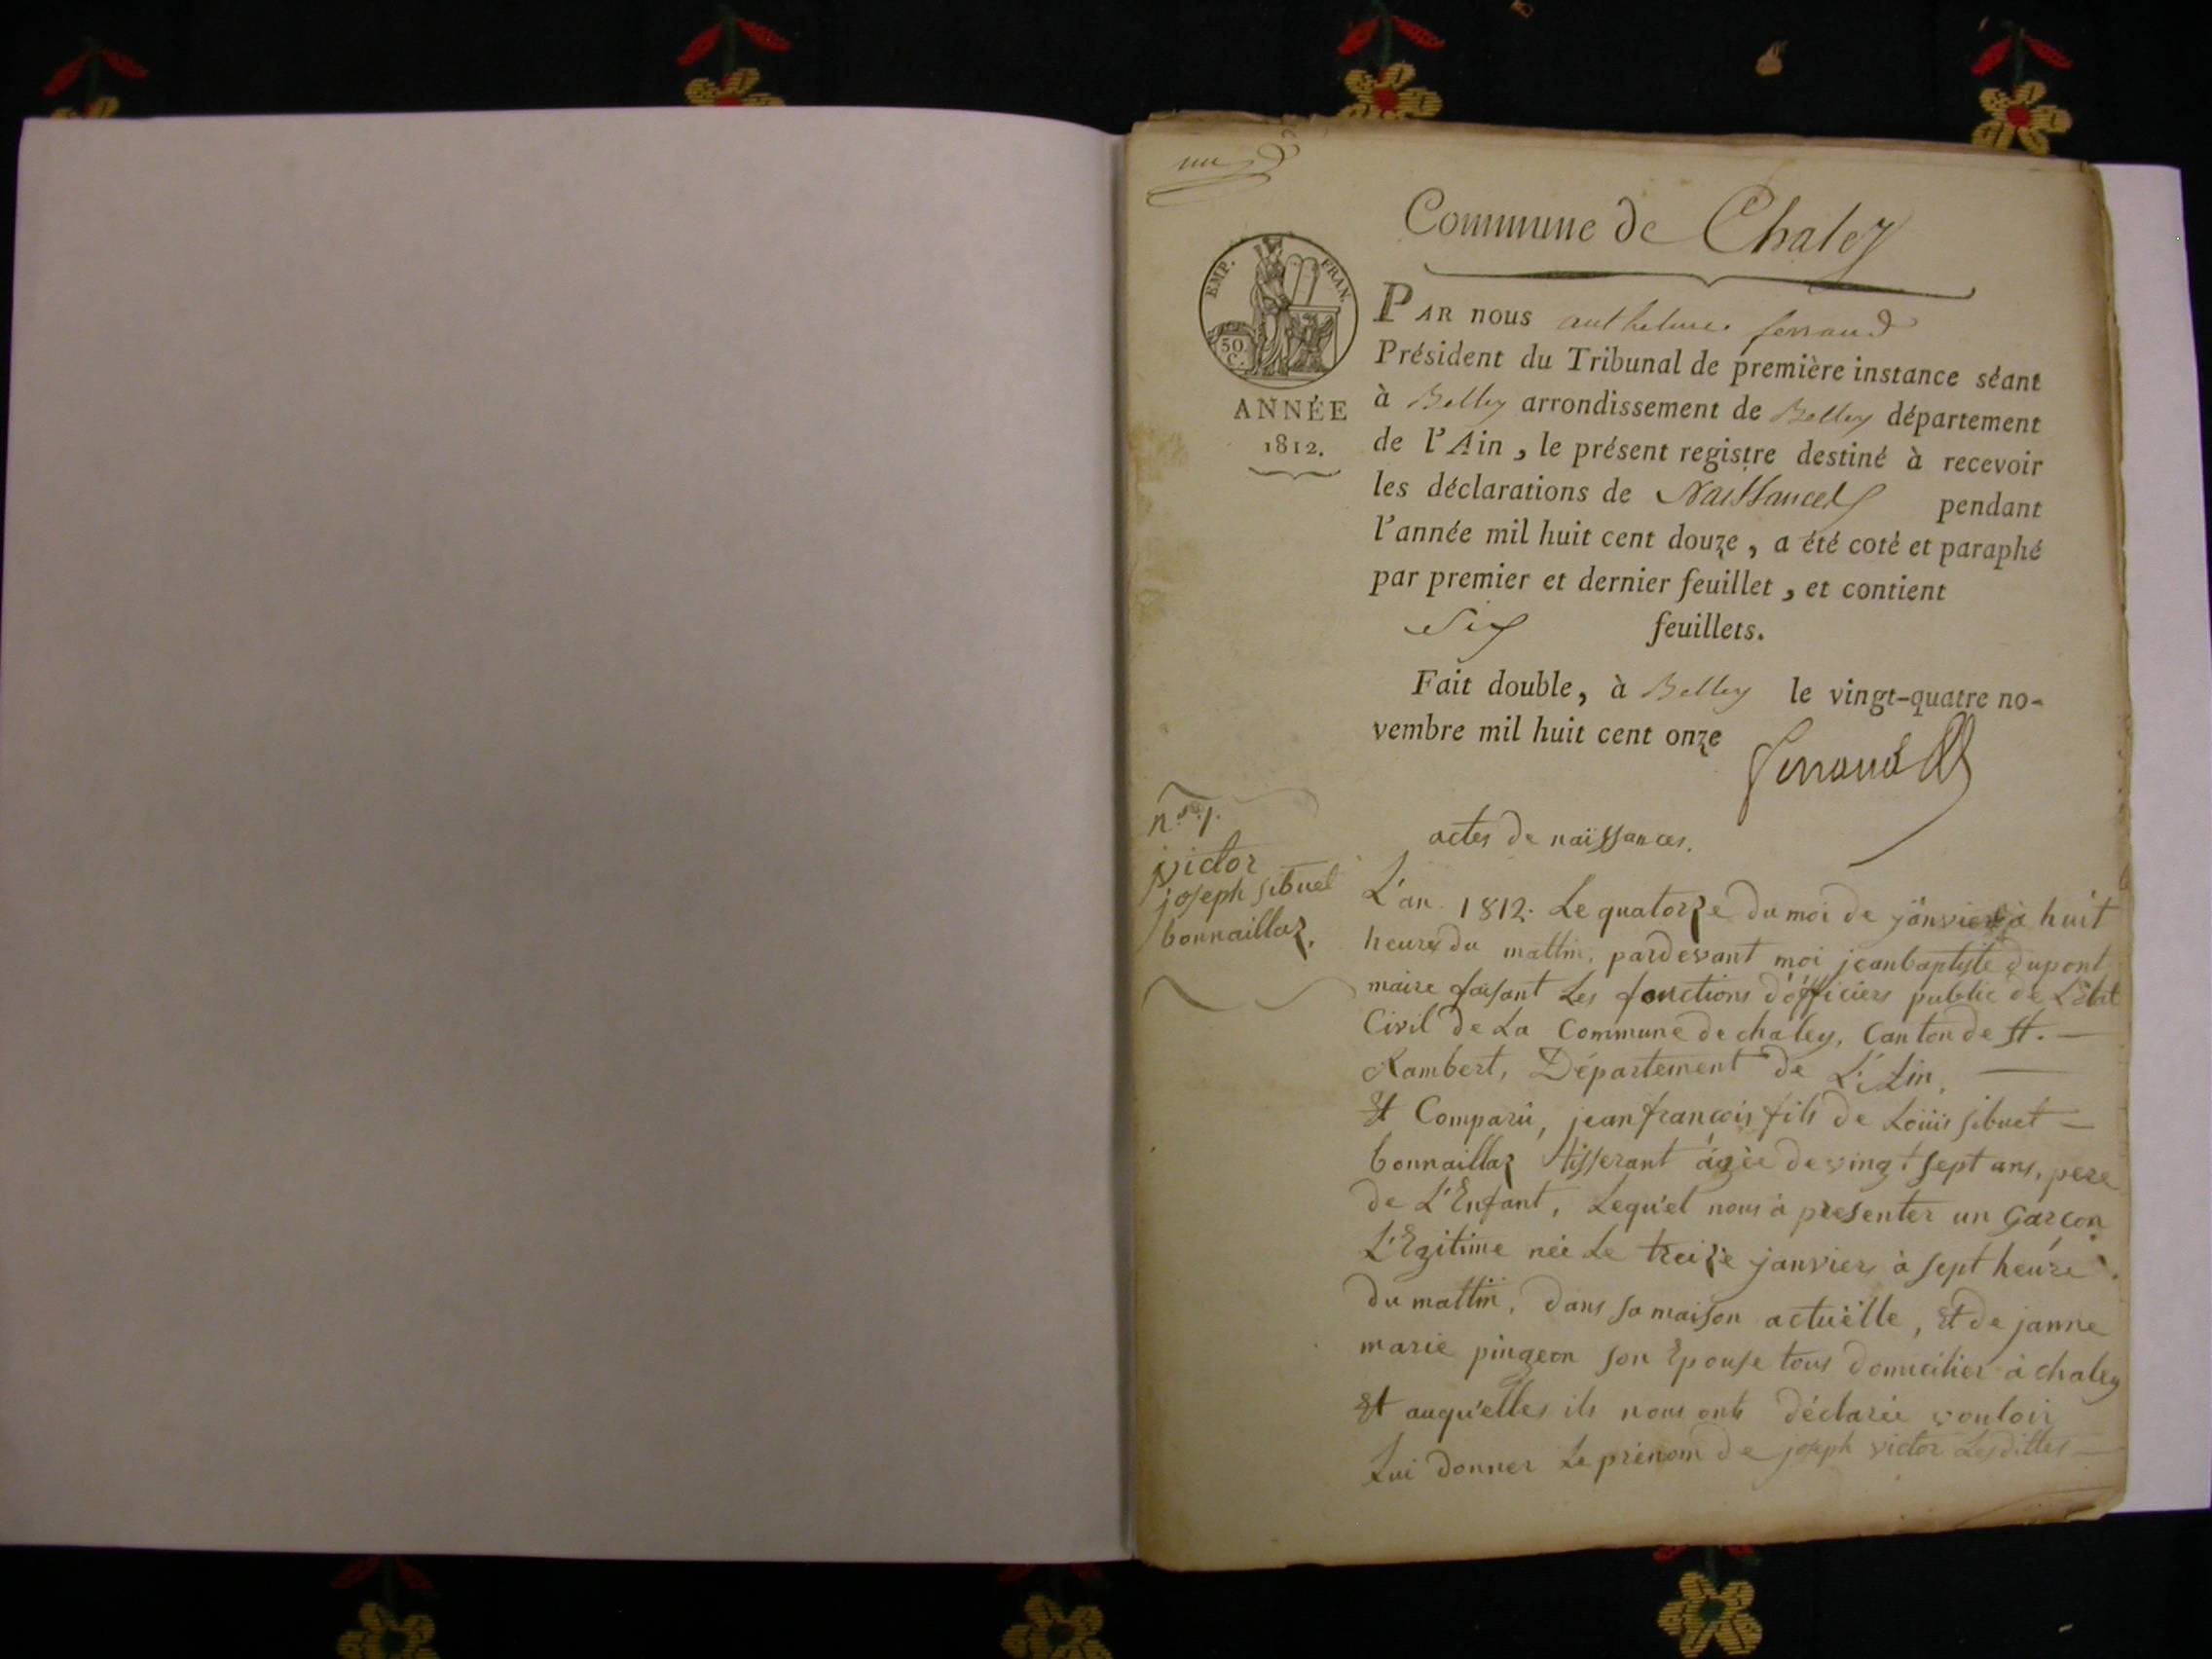 Commune de Chaley
EMP. FRAN.
50 C.
ANNÉE
1812.
PAR nous anthelme ferrand
Président du Tribunal de première instance séant
à Belley arrondissement de Belley département
de l'Ain, le présent registre destiné à recevoir
les déclarations de Naissances pendant
l'année mil huit cent douze, a été coté et paraphé
par premier et dernier feuillet, et contient
Six feuillets.
Fait double, à Belley le vingt-quatre no-
vembre mil huit cent onze
ferrand
n.º 1.
victor
joseph sibuet
bonnaillaz.
actes de naissances.
L'an 1812. Le quatorze du moi de janvier à huit
heure du mattin, pardevant moi jeanbaptiste dupont
maire faisant Les fonctions d'officiers public de L'Etat
Civil de La Commune de chaley, Canton de St. —
Rambert, Département de L'Ain. —
Et Comparu, jeanfrancois fils de Louis sibuet —
bonnaillaz tisserant agée de vingt sept ans, pere
de L'Enfant, Lequ'el nous à presenter un Garçon
L'Egitime née Le treize janvier à sept heure
du mattin, dans sa maison actuëlle, Et de janne
marie pingeon son Epouse tous domicilier à chaley
Et auqu'elles ils nous onts déclarée vouloir
Lui donner Le prénom de joseph victor Lesdittes —